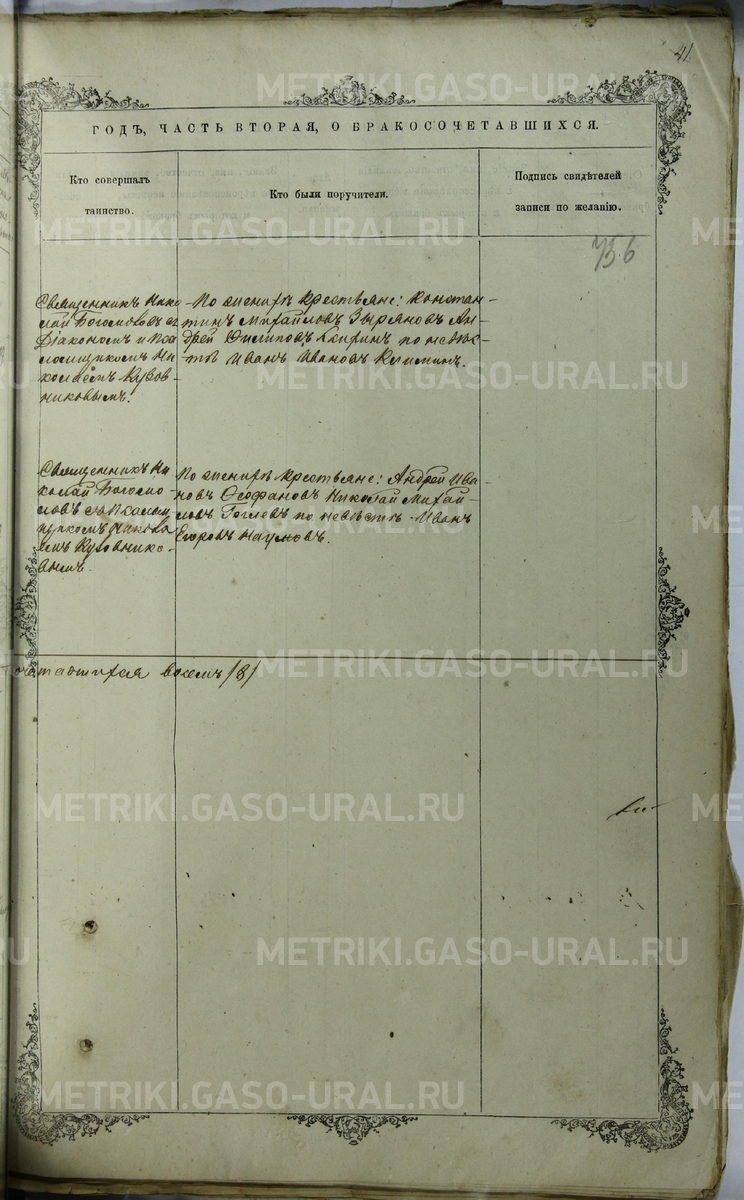 41.
ГОДЪ, ЧАСТЬ ВТОРАЯ, О БРАКОСОЧЕТАВШИХСЯ.
Кто совершалъ
таинство.
Кто были поручители.
Подпись свидѣтелей
записи по желанію.
756
Священникъ Нико-
лай Богомоловъ съ
Діакономъ и Пса-
ломщикомъ Ни-
колаемъ Кузов-
никовымъ.
По женихѣ крестьяне: Констан-
тинъ Михайловъ Зыряновъ Ан-
дрей Филиповъ по невѣс-
тѣ Иванъ Ивановъ
Священникъ Ни-
колай Богомо-
ловъ съ Псалом-
щикомъ Никола-
емъ Кузовнико-
вымъ.
По женихѣ крестьяне: Андрей Ива-
новъ Феофановъ Николай Михай-
ловъ по невѣстѣ - Иванъ
Егоровъ Наумовъ.
четавшихся восемь /8/
METRIKI.GASO-URAL.RU
METRIKI.GASO-URAL.RU
METRIKI.GASO-URAL.RU
METRIKI.GASO-URAL.RU
METRIKI.GASO-URAL.RU
METRIKI.GASO-URAL.RU
METRIKI.GASO-URAL.RU
METRIKI.GASO-URAL.RU